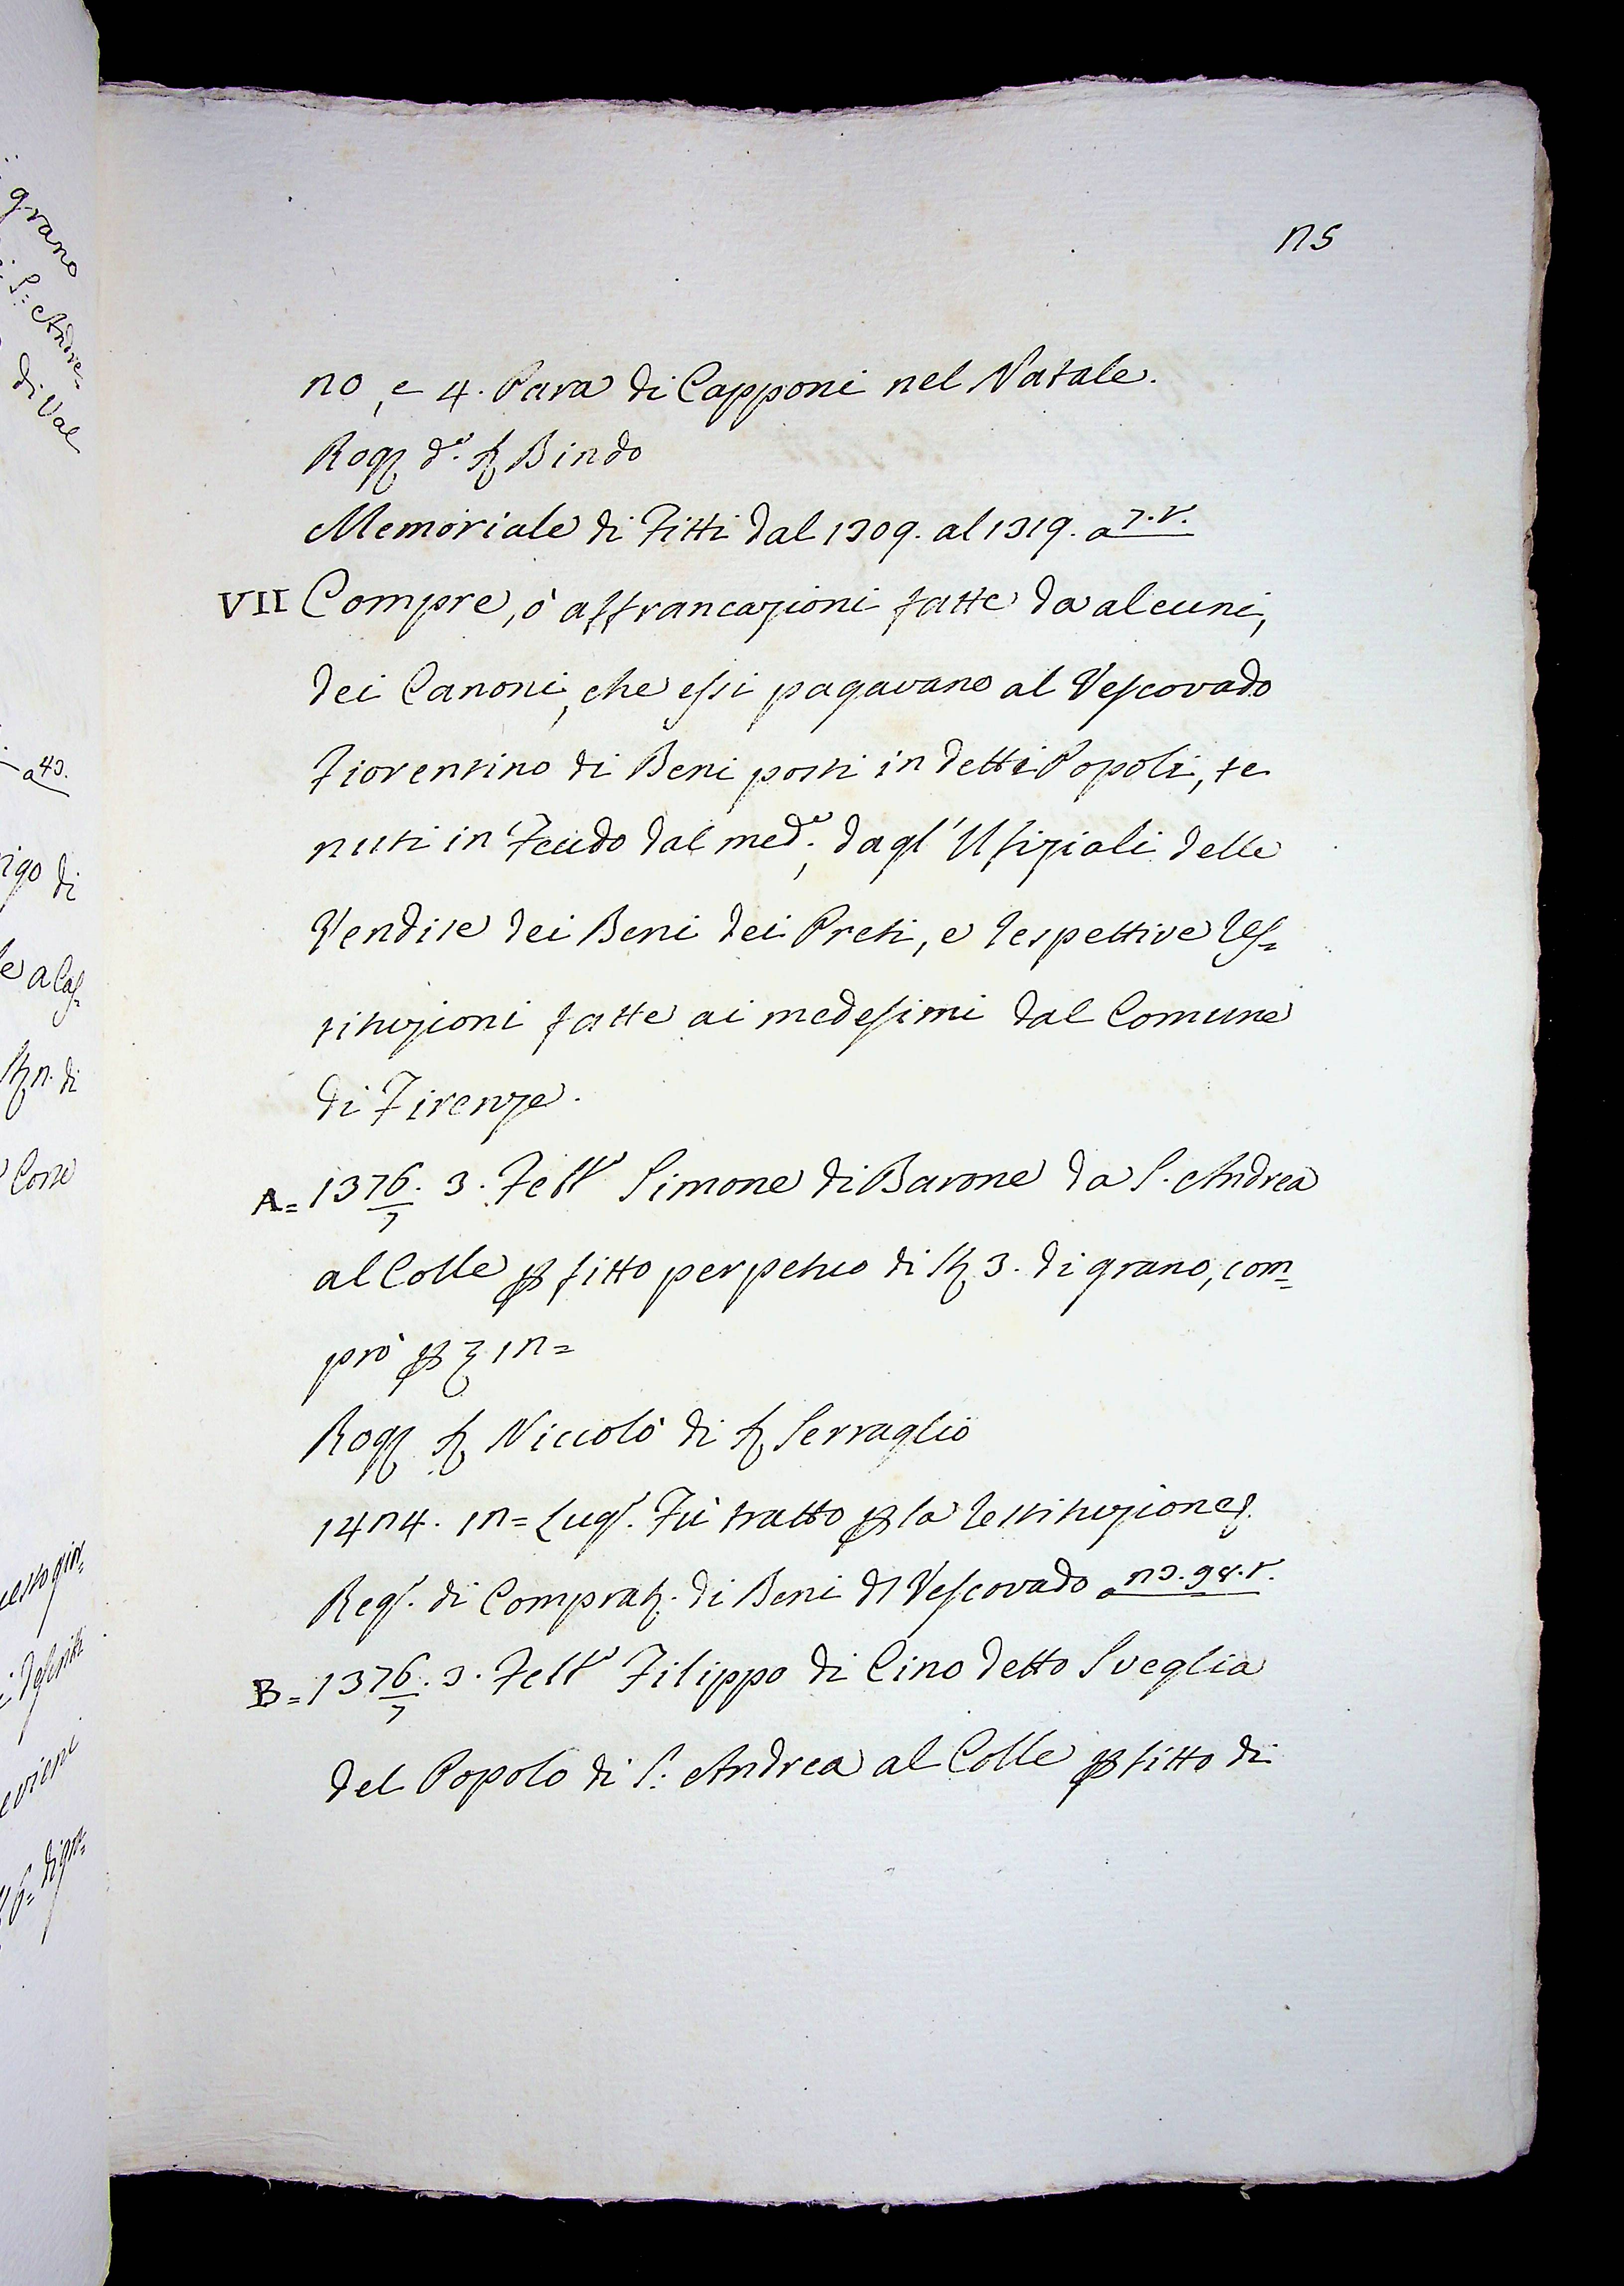 25
no, e 4. Para di Capponi nel Natale.
Rog. d.o S. Bindo
Memoriale di Fitti dal 1309. al 1319. a 7. r.
VII Compre, ò affrancazioni fatte da alcuni,
dei Canoni, che essi pagavano al Vescovado
Fiorentino di Beni posti in detti Popoli, te
nuti in Feudo dal med.o, dagl' Ufiziali delle
Vendite dei Beni dei Preti, e respettive res=
tituzioni fatte ai medesimi dal Comune
di Firenze.
A= 1376/7. 3. Febb.o Simone di Barone da S. Andrea
al Colle p fitto perpetuo di st. 3. di grano, com=
prò p 12=
Rog. S. Niccolò di S. Serraglio
1424. 12= Lug.o Fù tratto p la restituzione
Reg.o di Comprat. di Beni dl Vescovado a 23. 98. r.
B= 1376/7. 3. Febb.o Filippo di Cino detto Sveglia
del Popolo di S. Andrea al Colle p fitto di
grano
S. Andre=
di Val
a 43.
rigo di
di